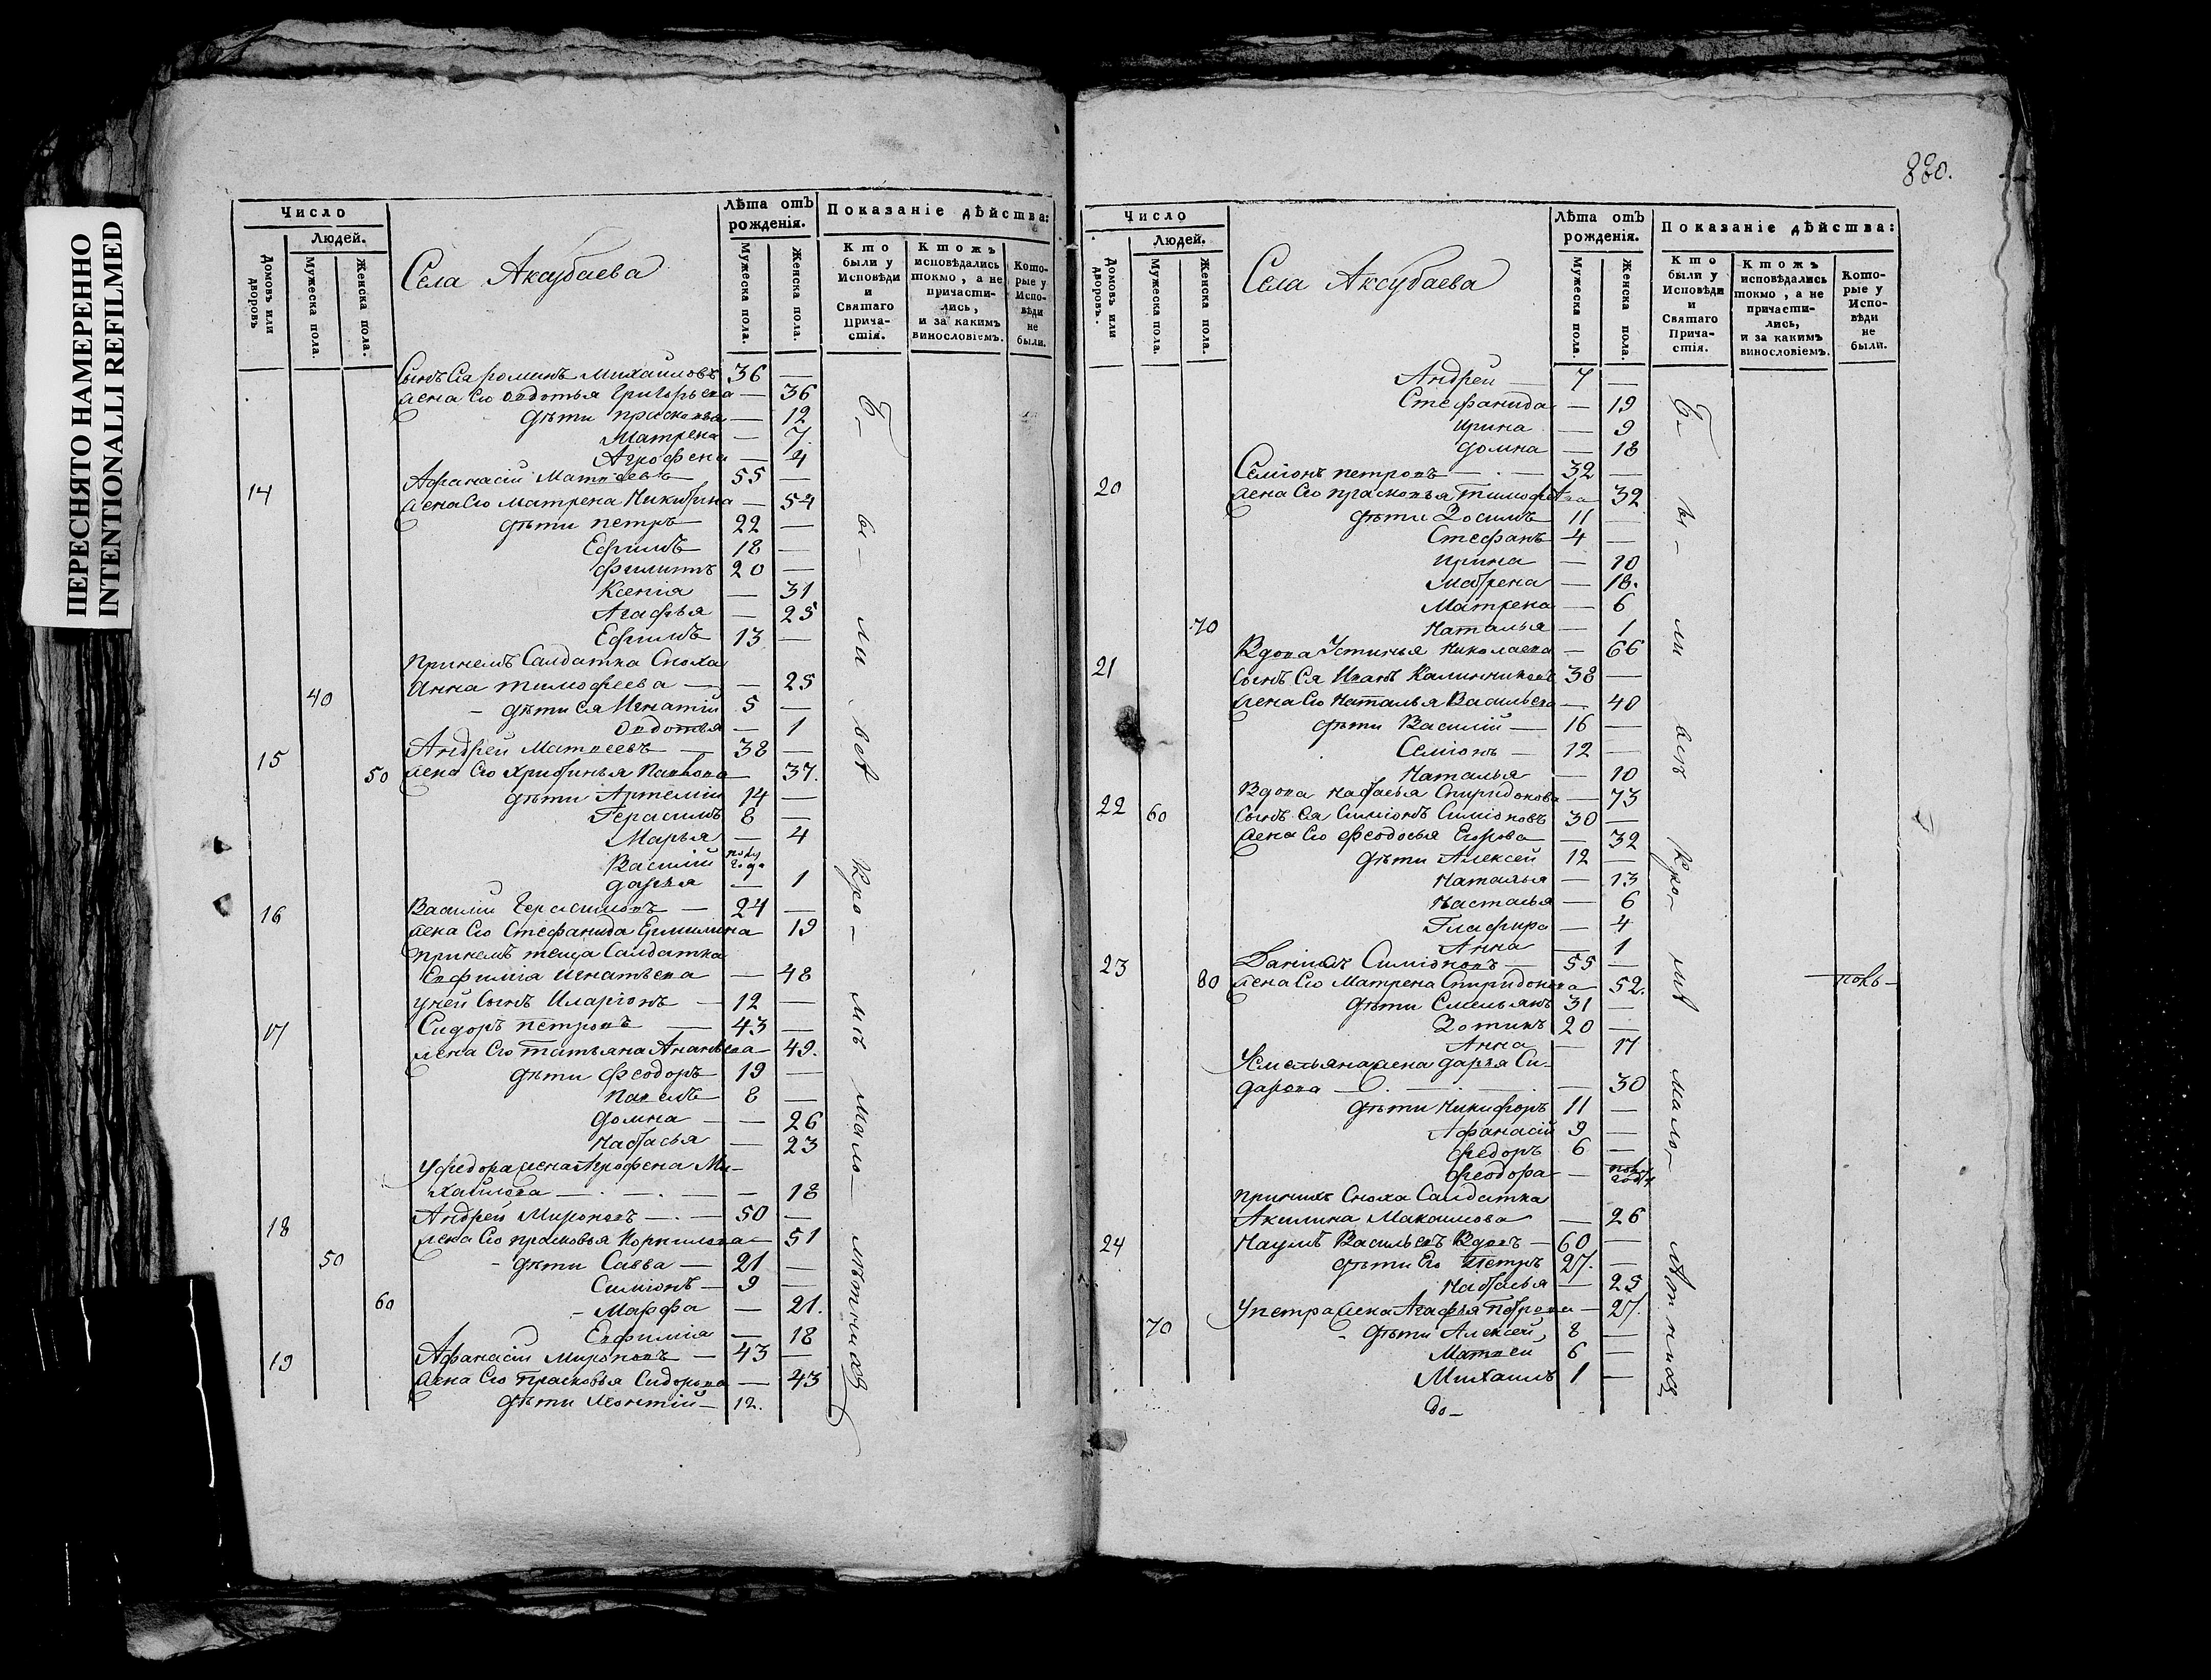 ПЕРЕСНЯТО НАМЕРЕННО
INTENTIONALLI REFILMED
Число
Людей.
Домовъ или дворовъ
Мужеска пола.
Женска пола.
Села Аксубаева
Лѣта отъ рожденія.
Мужеска пола.
Женска пола.
Показаніе дѣйства:
Кто были у Исповѣди и Святаго Прича-стія.
Ктожъ исповѣдались токмо, а не причасти-лись, и за какимъ винословіемъ.
Кото-рые у Испо-вѣди не были.
Сынъ Ея Роминъ Михаиловъ 36 —
жена Его Овдотья Григорьева — 36
дѣти Прасковья — 12
Матрена — 7
Агрофена — 4
14 Афанасій Матвѣевъ 55 —
жена Его Матрена Никитина — 54
дѣти Петръ 22 —
Ефимъ 18 —
Филиппъ 20 —
Ксенія — 31
Агафья — 25
Ефимъ 13 —
При немъ Салдатка Сноха
Анна Тимофеева — — 25
40 дѣти Ея Игнатій 5 —
Овдотья — 1
15 Андрей Матвеевъ — 38 —
50 жена Его Христинья Павлова — 37.
дѣти Артемій 14 —
Герасимъ 8 —
Марья — 4
Василій полу года
Дарья — 1
16 Василій Герасимовъ — 24 —
жена Его Стефанида Ермилина 19
При немъ теща Салдатка
Евфимія Игнатьева — 48
у ней Сынъ Иларіонъ — 12 —
17 Сидоръ Петровъ — 43 —
жена Его Татьяна Ананьева — 49.
дѣти Феодоръ 19 —
Павелъ 8 —
Домна — — 26
Настасья — 23
У Федора жена Агрофена Ми-
хаилова — . — . — — 18
18 Андрей Мироновъ — . — 50 —
жена Его Прасковья Корнилова — 51
50 - дѣти Савва — 21 —
Симіонъ — 9 —
60 - Марфа — 21.
Евфимія — 18
19 Афанасій Мироновъ — 43 —
жена Его Прасковья Сидорова — 43
дѣти Леонтій — 12.
Бы-ли всѣ Кромѣ малолѣтнихъ
880.
Число
Людей.
Домовъ или дворовъ.
Мужеска пола.
Женска пола.
Села Аксубаева
Лѣта отъ рожденія.
Мужеска пола.
Женска пола.
Показаніе дѣйства:
Кто были у Исповѣди и Святаго Прича-стія.
Ктожъ исповѣдались токмо, а не причасти-лись, и за какимъ винословіемъ.
Кото-рые у Испо-вѣди не были.
Андрей — 7 —
Стефанида — 19
Ирина — 9
Домна — 18
20 Семіонъ Петровъ — . — 32 —
жена Его Прасковья Тимофеева 32
дѣти Зосимъ 11 —
Стефанъ 4 —
Ирина — 10
Матрена — 18.
Матрена — 6
70 Наталья — 1
21 Вдова Устинья Николаева — 66
Сынъ Ея Иванъ Калинниковъ 38 —
жена Его Наталья Васильева — 40
дѣти Василій — 16 —
Семіонъ — 12 —
Наталья — 10
22 Вдова Настасья Спиридонова — 73
60 Сынъ Ея Симіонъ Симіоновъ 30 —
жена Его Феодосья Егорова — 32
дѣти Алексей 12 —
Наталья — 13
Настасья — 6
Глафира — 4
Анна — 1
23 Данiилъ Симіоновъ — 55 —
80 жена Его Матрена Спиридонова 52.
дѣти Емельянъ 31 —
Зотикъ 20 —
Анна — 17
У Емельяна жена Дарья Си-
дарова — . — . — 30
дѣти Никифоръ 11 —
Афанасій 9 —
Федоръ 6 —
Феодора —
При нихъ Сноха Салдатка
Акилина Макаимова — 26
24 Наумъ Васильевъ Вдовъ — 60 —
дѣти Его Петръ 27. —
Настасья — 25
У Петра жена Агафья Петрова — 27.
70 - дѣти Алексей 8 —
Матвей 6 —
Михаилъ 1 —
до —
Бы-ли всѣ Кро-мѣ мало-лѣтнихъ